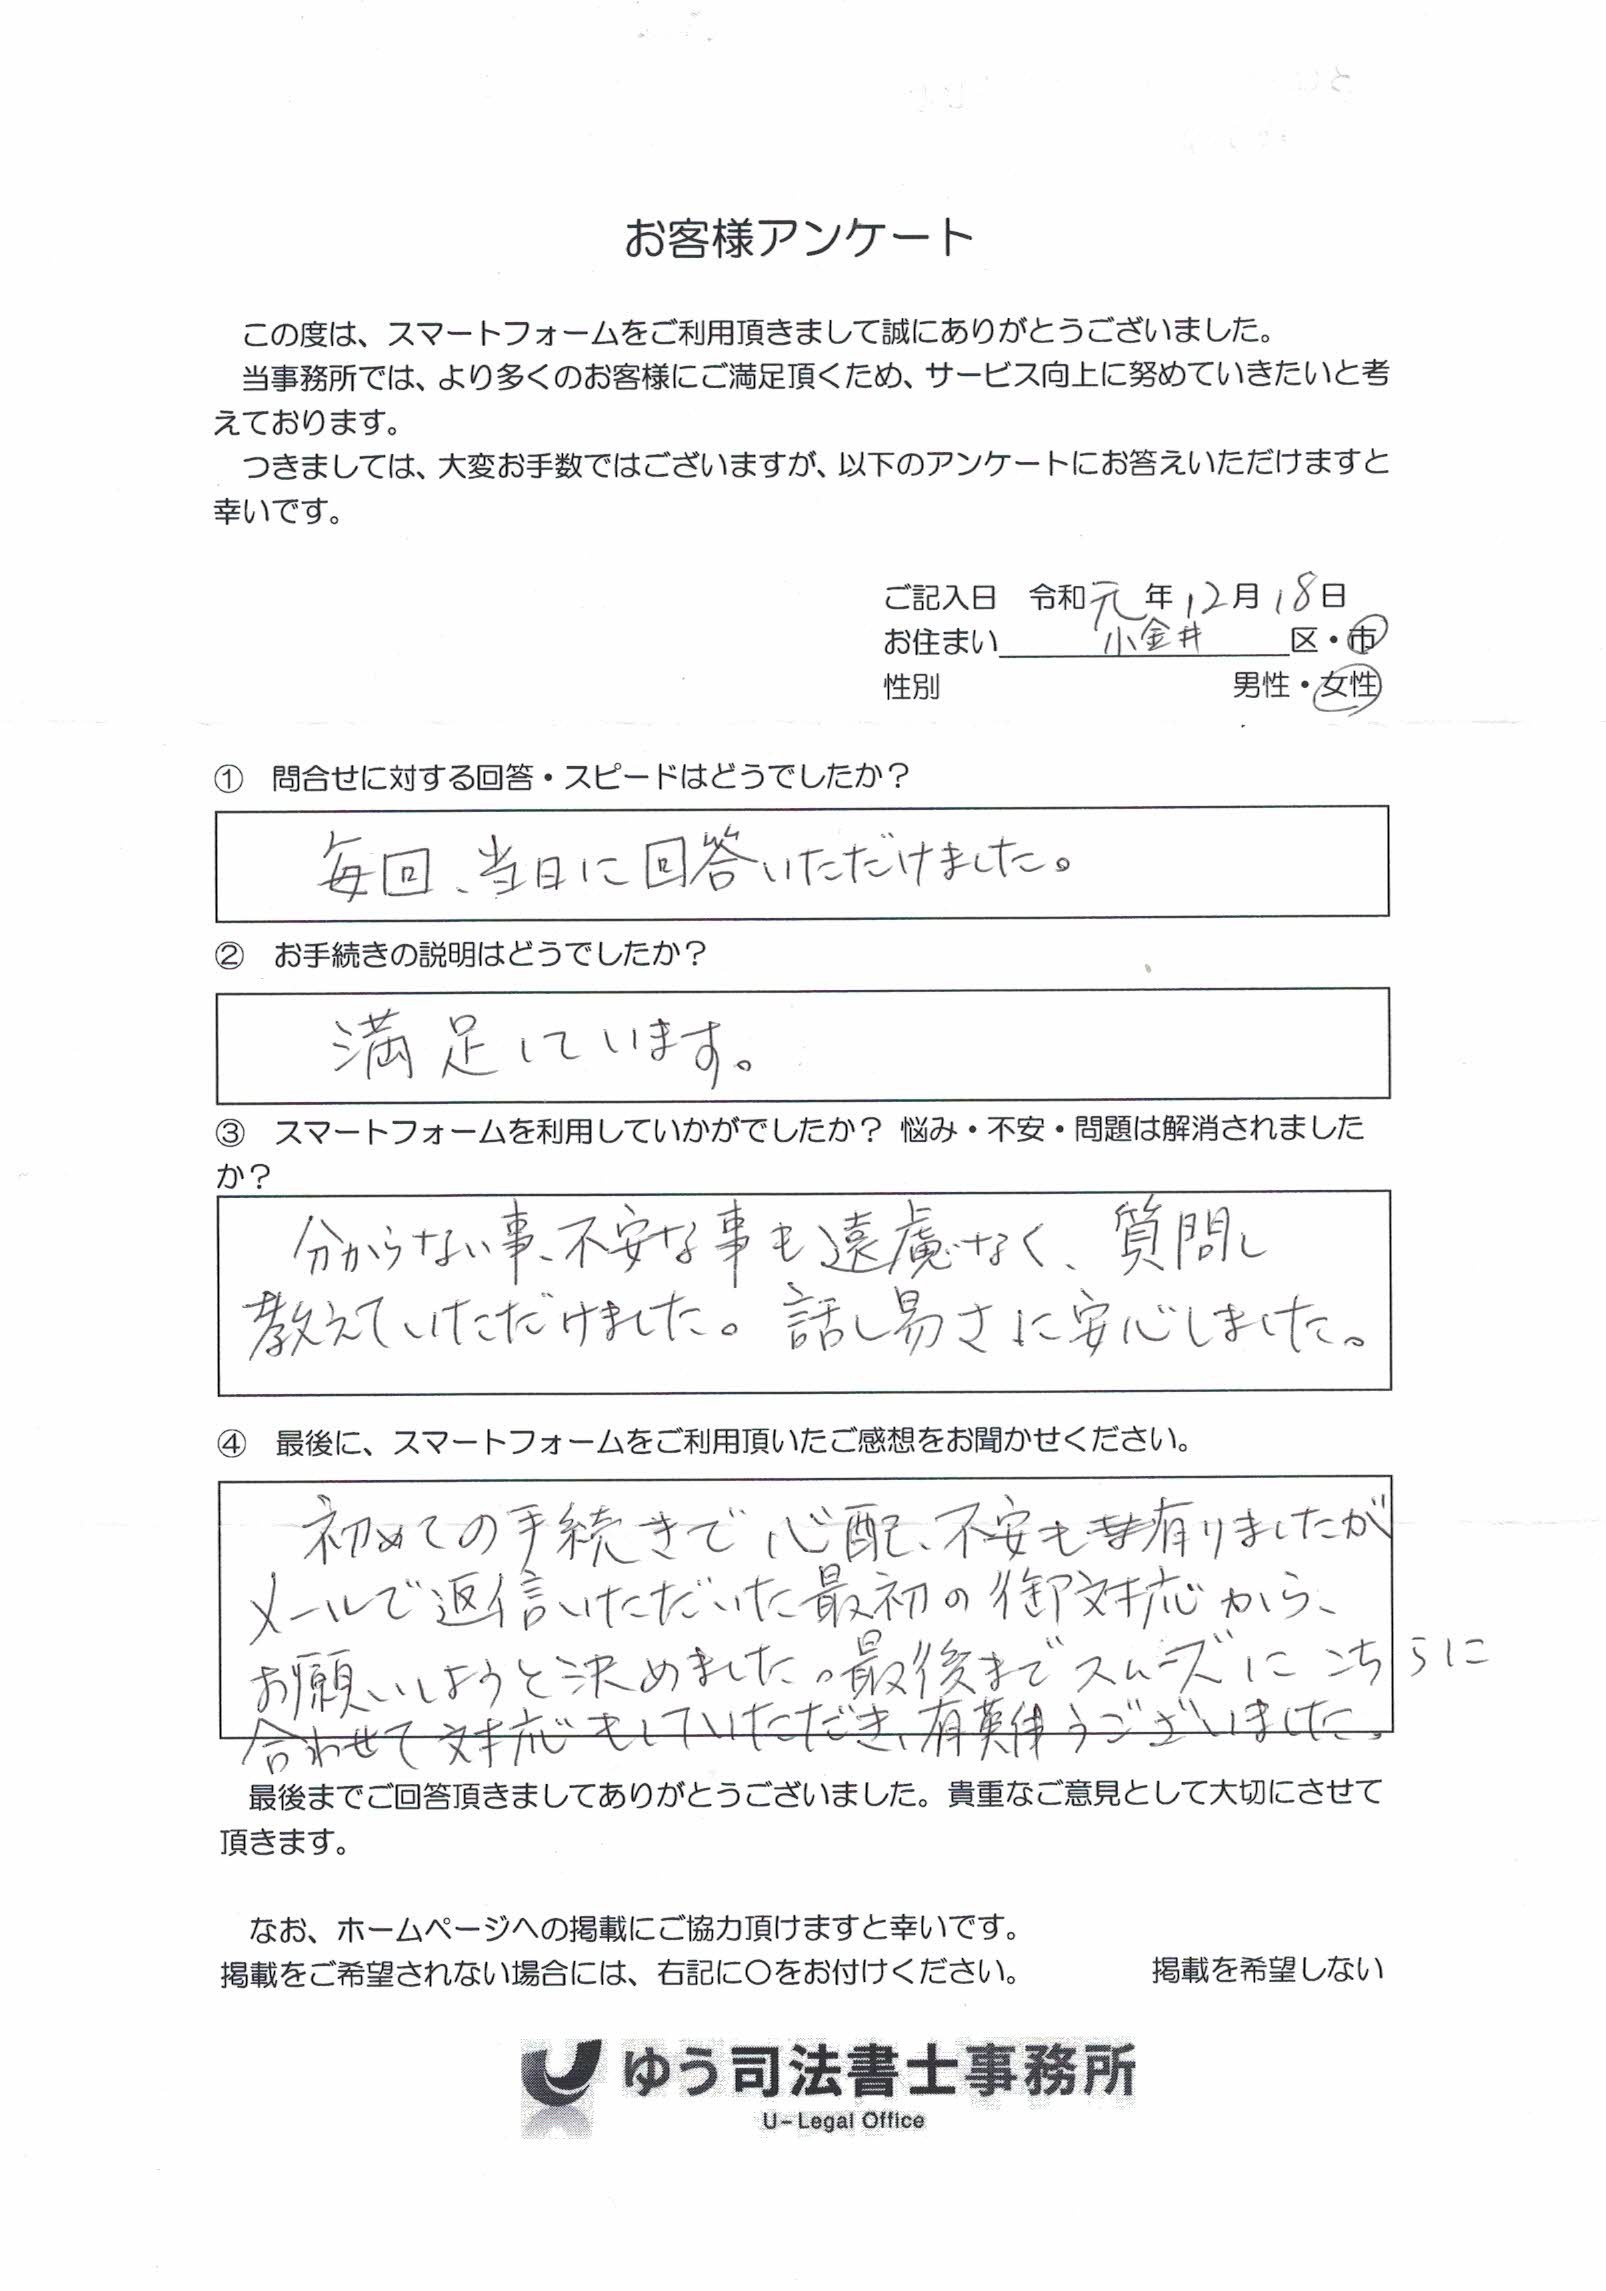 お客様アンケート
この度は、スマートフォームをご利用頂きまして誠にありがとうございました。
当事務所では、より多くのお客様にご満足頂くため、サービス向上に努めていきたいと考
えております。
つきましては、大変お手数ではございますが、以下のアンケートにお答えいただけますと
幸いです。
ご記入日 令和元年12月18日
お住まい 小金井 区・市
性別 男性・女性
① 問合せに対する回答・スピードはどうでしたか？
毎回、当日に回答いただけました。
② お手続きの説明はどうでしたか？
満足しています。
③ スマートフォームを利用していかがでしたか？ 悩み・不安・問題は解消されました
か？
分からない事、不安な事も遠慮なく、質問し
教えていただけました。話し易さに安心しました。
④ 最後に、スマートフォームをご利用頂いたご感想をお聞かせください。
初めての手続きで心配、不安も有りましたが
メールで返信いただいた最初の御対応から、
お願いしようと決めました。最後までスムーズにこちらに
合わせて対応もしていただき、有難うございました。
最後までご回答頂きましてありがとうございました。貴重なご意見として大切にさせて
頂きます。
なお、ホームページへの掲載にご協力頂けますと幸いです。
掲載をご希望されない場合には、右記に〇をお付けください。 掲載を希望しない
ゆう司法書士事務所
U-Legal Office